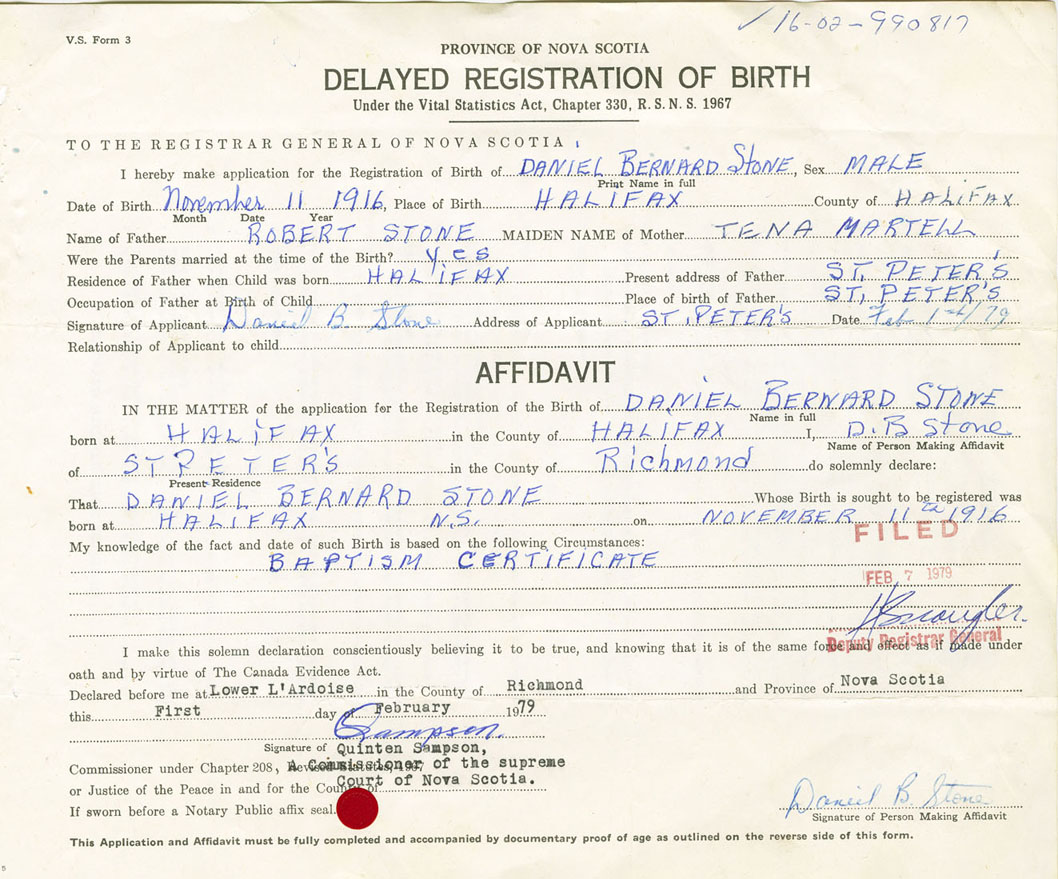 ✓16-02-990817
V.S. Form 3
PROVINCE OF NOVA SCOTIA
DELAYED REGISTRATION OF BIRTH
Under the Vital Statistics Act, Chapter 330, R.S.N.S. 1967
TO THE REGISTRAR GENERAL OF NOVA SCOTIA
I hereby make application for the Registration of Birth of DANIEL BERNARD STONE, Sex MALE
Print Name in full
Date of Birth November 11 1916, Place of Birth HALIFAX County of HALIFAX
Month Date Year
Name of Father ROBERT STONE MAIDEN NAME of Mother TENA MARTELL
Were the Parents married at the time of the Birth? yes
Residence of Father when Child was born HALIFAX Present address of Father ST. PETER'S
Occupation of Father at Birth of Child Place of birth of Father ST, PETER'S
Signature of Applicant Daneil B Stone Address of Applicant ST. PETER'S Date Feb 1st/79
Relationship of Applicant to child
AFFIDAVIT
IN THE MATTER of the application for the Registration of the Birth of DANIEL BERNARD STONE
Name in full
born at HALIFAX in the County of HALIFAX I, D.B Stone
Name of Person Making Affidavit
of ST PETER'S in the County of Richmond do solemnly declare:
Present Residence
That DANIEL BERNARD STONE Whose Birth is sought to be registered was
born at HALIFAX N.S. on NOVEMBER 11 1916
FILED
My knowledge of the fact and date of such Birth is based on the following Circumstances:
BAPTISM CERTIFICATE
FEB 7 1979
Deputy Registrar General
I make this solemn declaration conscientiously believing it to be true, and knowing that it is of the same force and effect as if made under
oath and by virtue of The Canada Evidence Act.
Declared before me at Lower L'Ardoise in the County of Richmond and Province of Nova Scotia
this First day of February 1979
Sampson
Signature of Quinten Sampson,
Commissioner under Chapter 208, A Commissioner of the supreme
or Justice of the Peace in and for the County of Court of Nova Scotia.
If sworn before a Notary Public affix seal.
Daneil B Stone
Signature of Person Making Affidavit
This Application and Affidavit must be fully completed and accompanied by documentary proof of age as outlined on the reverse side of this form.
5